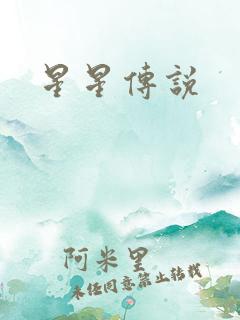 星星傳說
阿米里
未经同意禁止转载